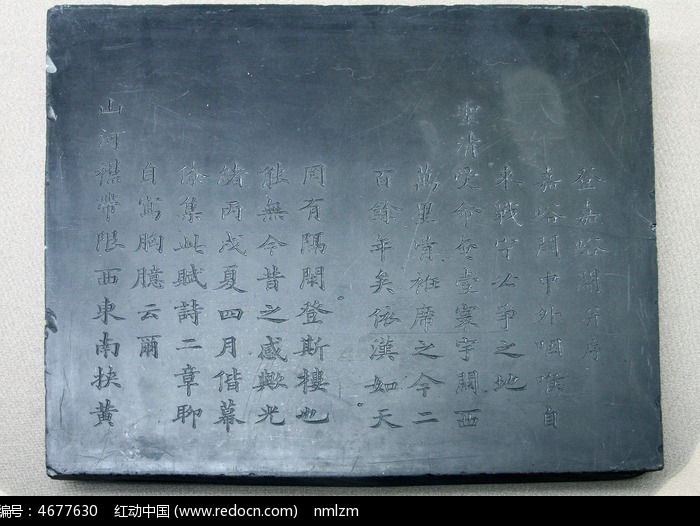 登嘉峪關并序
嘉峪關中外咽喉自
來戰守必爭之地
聖清受命奄壹寰宇關西
萬里皆袵席之今二
百餘年矣依漢如天
罔有隔閡登斯樓也
能無今昔之感歟光
緒丙戌夏四月偕幕
徐集此賦詩二章聊
自寫胸臆云爾
山河襟帶限西東南挾黃
编号: 4677630 红动中国 (www.redocn.com) nmlzm